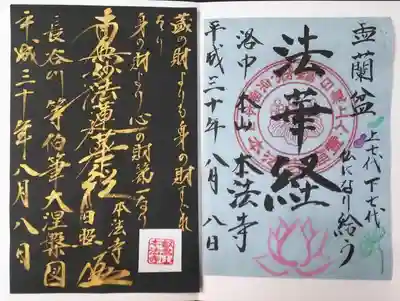 盂蘭盆
上七代下七代
仏になり給う
法華経
洛中 本山 本法寺
平成三十年八月八日
蔵の財よりも身の財すぐれ
たり
身の財より心の財第一なり
南無妙法蓮華経
本法寺
長谷川等伯筆大涅槃図
平成三十年八月八日